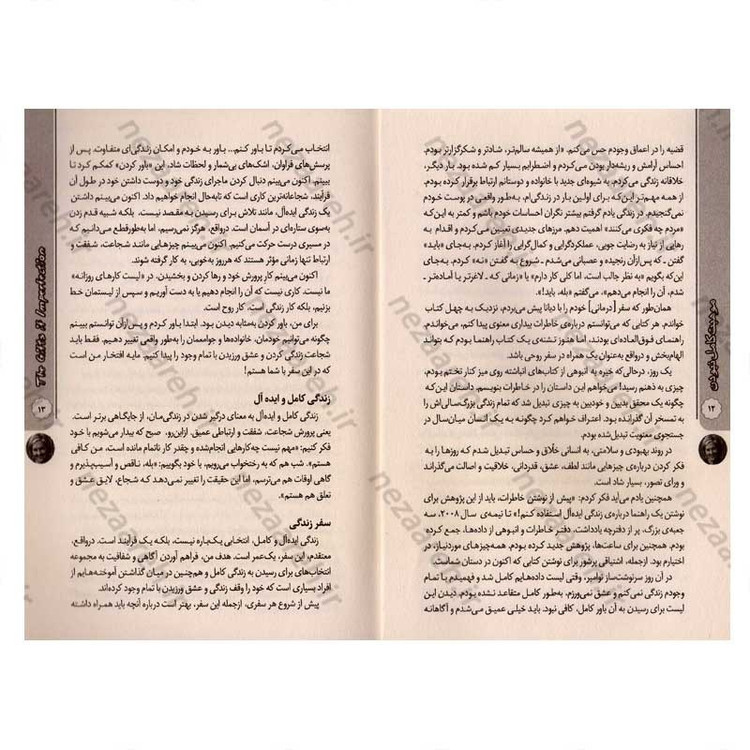 قضیه را در اعماق وجودم حس می‌کنم. «از همیشه سالم‌تر، شادتر و شکرگزارتر بودم.
احساس آرامش و ریشه‌دار بودن می‌کردم و اضطرابم بسیار کم شده بود. بار دیگر،
خلاقانه زندگی می‌کردم، به شیوه‌ای جدید با خانواده و دوستانم ارتباط برقرار کرده بودم.
از همه مهم‌تر این‌که برای اولین بار در زندگی‌ام، به‌طور واقعی در پوست خودم
نمی‌گنجیدم. در زندگی یادم گرفتم بیشتر نگران احساسات خودم باشم و کمتر به این‌که
«مردم چه فکری می‌کنند» اهمیت دهم. مرزهای جدیدی تعیین می‌کردم و اقدام به
رهایی از نیاز به رضایت جویی، عملکردگرایی و کمال‌گرایی را آغاز کردم. به‌جای «باید»
گفتن ـ که پس‌ازآن رنجیده و عصبانی می‌شدم ـ شروع به گفتن «نه» کردم. به‌جای
این‌که بگویم «به نظر جالب است، اما کلی کار دارم» یا «زمانی که ـ لاغرتر یا آماده‌تر ـ
شدم، آن را انجام می‌دهم»، می‌گفتم «بله، باید!».
همان‌طور که سفر [درمانی] خودم را با دیانا پیش می‌بردم، نزدیک به چهل کتاب
خواندم. هر کتابی که می‌توانستم درباره‌ی خاطرات بیداری معنوی پیدا کنم، می‌خواندم.
راهنمای فوق‌العاده‌ای بودند. اما هنوز تشنه‌ی یک کتاب راهنما بودم که بتواند
الهام‌بخش و درواقع به‌عنوان یک همراه در سفر روحی باشد.
یک روز، درحالی‌که خیره به انبوهی از کتاب‌های انباشته روی میز کنار تختم بودم،
چیزی به ذهنم رسید! می‌خواهم این داستان را در خاطرات بنویسم. این‌که
چگونه یک محقق بدبین و خودبین به چیزی تبدیل شد که تمام زندگی بزرگ‌سالی‌اش را
به تمسخر آن گذرانده بود. اعتراف خواهم کرد چگونه به یک انسان میان‌سال در
جستجوی معنویت تبدیل‌شده بودم.
در روند بهبودی و سلامتی، به انسانی خلّاق و حساس تبدیل شدم که روزها را به
فکر کردن درباره‌ی چیزهایی مانند لطف، عشق، قدردانی، خلاقیت و اصالت می‌گذراند
و ورای تصور، بسیار شاد است.
همچنین یادم می‌آید فکر کردم: «پیش از نوشتن خاطرات، باید از این پژوهش برای
نوشتن یک راهنما درباره‌ی زندگی ایده‌آل استفاده کنم!» تا نیمه‌ی سال ۲۰۰۸، سه
جعبه‌ی بزرگ، پر از دفترچه یادداشت، دفتر خاطرات و انبوهی از داده‌ها، جمع کرده
بودم. همچنین برای ساعت‌ها، پژوهش جدید کرده بودم. همه‌چیزهای موردنیاز، در
اختیارم بود. ازجمله، اشتیاقی پرشور برای نوشتن کتابی که اکنون در دستان شماست.
در آن روز سرنوشت‌ساز نوامبر، وقتی لیست داده‌هایم کامل شد و فهمیدم با تمام
وجودم زندگی نمی‌کنم و عشق نمی‌ورزم، به‌طور کامل متقاعد نشده بودم. دیدن این
لیست برای رسیدن به آن باور کامل، کافی نبود. باید خیلی عمیق می‌شدم و آگاهانه
موهبت کامل نبودن
۱۲
انتخاب می‌کردم تا باور کنم... باور به خودم و امکان زندگی‌ای متفاوت. پس از
پرسش‌های فراوان، اشک‌های بی‌شمار و لحظات شاد، این «باور کردن» کمکم کرد تا
ببینم. اکنون می‌بینم دنبال کردن ماجرای زندگی خود و دوست داشتن خود در طول آن
فرآیند، شجاعانه‌ترین کاری است که تابه‌حال انجام خواهیم داد. اکنون می‌بینم پرورش
یک زندگی ایده‌آل، مانند تلاش برای رسیدن به مقصد نیست. بلکه شبیه قدم زدن
به‌سوی ستاره‌ای در آسمان است. درواقع، هرگز نمی‌رسیم. اما به‌طورقطع می‌دانیم که
در مسیری درست حرکت می‌کنیم. اکنون می‌بینم چیزهایی مانند شجاعت، شفقت و
ارتباط تنها زمانی مؤثر هستند که هرروز به‌خوبی، به کار گرفته شوند.
اکنون می‌بینم کار پرورش خود و رها کردن و بخشیدن، در «لیست کارهای روزانه»
ما نیست. کاری نیست که آن را انجام دهیم یا به دست آوریم و سپس از لیستمان خط
بزنیم، بلکه کار زندگی است. کار روح است.
برای من، باور کردن به‌مثابه دیدن بود. ابتدا باور کردم و پس‌ازآن توانستم ببینم
چگونه می‌توانیم خودمان، خانواده‌ها و جوامعمان را به‌طور واقعی تغییر دهیم. فقط باید
شجاعت زندگی کردن و عشق ورزیدن با تمام وجود را پیدا کنیم. مایه افتخار من است
که در این سفر با شما هستم!
زندگی کامل و ایده آل
زندگی کامل و ایده‌آل به معنای درگیر شدن در زندگی‌مان، از جایگاهی برتر است.
یعنی پرورش شجاعت، شفقت و ارتباطی عمیق. ازاین‌رو، صبح که بیدار می‌شویم با خود
فکر کنیم: «مهم نیست چه کارهایی انجام‌شده و چقدر کار ناتمام مانده است، من کافی
هستم». شب هم که به رختخواب می‌رویم، با خود بگوییم: «بله، ناقص و آسیب‌پذیرم و
گاهی اوقات هم می‌ترسم، اما این حقیقت را تغییر نمی‌دهد که شجاع، لایق عشق و
تعلق هم هستم».
سفر زندگی
زندگی ایده‌آل و کامل، انتخابی یکباره نیست. بلکه یک فرآیند است. درواقع،
معتقدم، این سفر، یک‌عمر است. هدف من، فراهم آوردن آگاهی و شفافیت به مجموعه
انتخاب‌های برای رسیدن به زندگی کامل و همچنین در میان گذاشتن آموخته‌هایم از
افراد بسیاری است که خود را وقف زندگی و عشق ورزیدن با تمام وجود کرده‌اند.
پیش از شروع هر سفری، ازجمله این سفر، بهتر است درباره آنچه باید همراه داشته
The Gifts of Imperfection
۱۳
nezaareh.ir